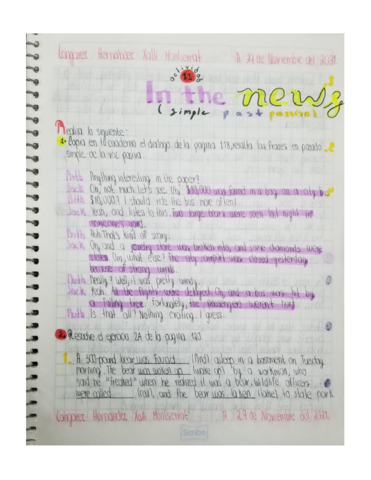 Longares Hernández Xalli Montserrat A 29 de Noviembre del 2021
actividad
11
In the news
(simple past passive)
Realiza lo siguiente:
1. Copia en tu cuaderno el dialogo de la pagina 118, resalta las frases en pasado
simple de la voz pasiva.
Beth Anything interesting in the paper?
Jack Oh, not much. Let's see. Uh, $10,000 was found in a bag on a city bus
Beth $10,000? I should ride the bus more often!
Jack Yeah, and listen to this. Two large bears were seen last night in
someone's yard.
Beth Huh. That's kind of scary.
Jack Oh, and a jewelry store was broken into, and some diamonds were
stolen. Oh, what else? The city airport was closed yesterday
because of strong winds.
Beth Really? Well, it was pretty windy.
Jack Yeah. All the flights were delayed. Oh, and a bus was hit by
a falling tree. Fortunately, the passengers weren't hurt
Beth Is that all? Nothing exciting, I guess.
2. Resuelve el ejercicio 2A de la pagina 123
1. A 500-pound bear was found (find) asleep in a basement on Tuesday
morning. The bear was woken up (wake up) by a workman, who
said he "freaked" when he realized it was a bear. Wildlife officers
were called (call), and the bear was taken (take) to state park
Longares Hernández Xalli Montserrat A 29 de Noviembre del 2021
Scribe